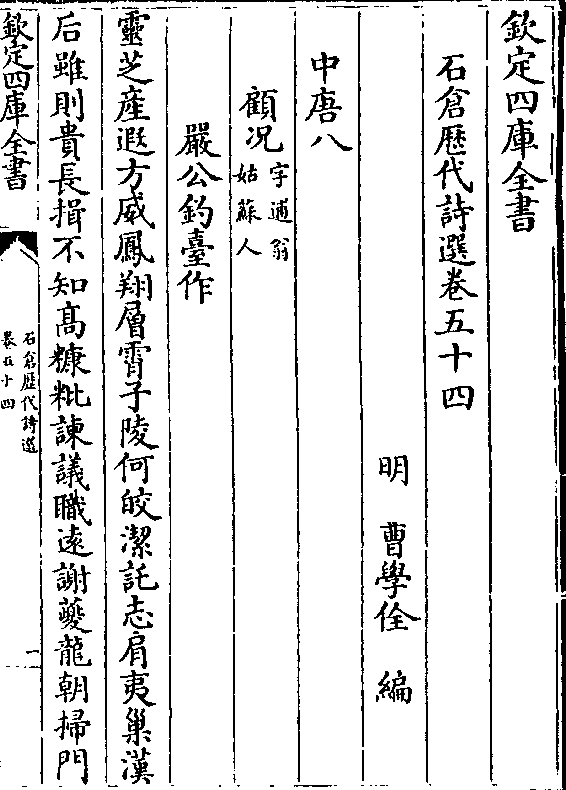 欽定四庫全書
石倉歷代詩選卷五十四
明 曹學佺 編
中唐八
顧況字逋翁姑蘇人
嚴公釣臺作
靈芝産遐方威鳳翔層霄子陵何皎潔託志肩夷巢漢
后雖則貴長揖不知髙糠粃諫議職逺謝夔龍朝掃門
欽定四庫全書
石倉歷代詩選
卷五十四
一